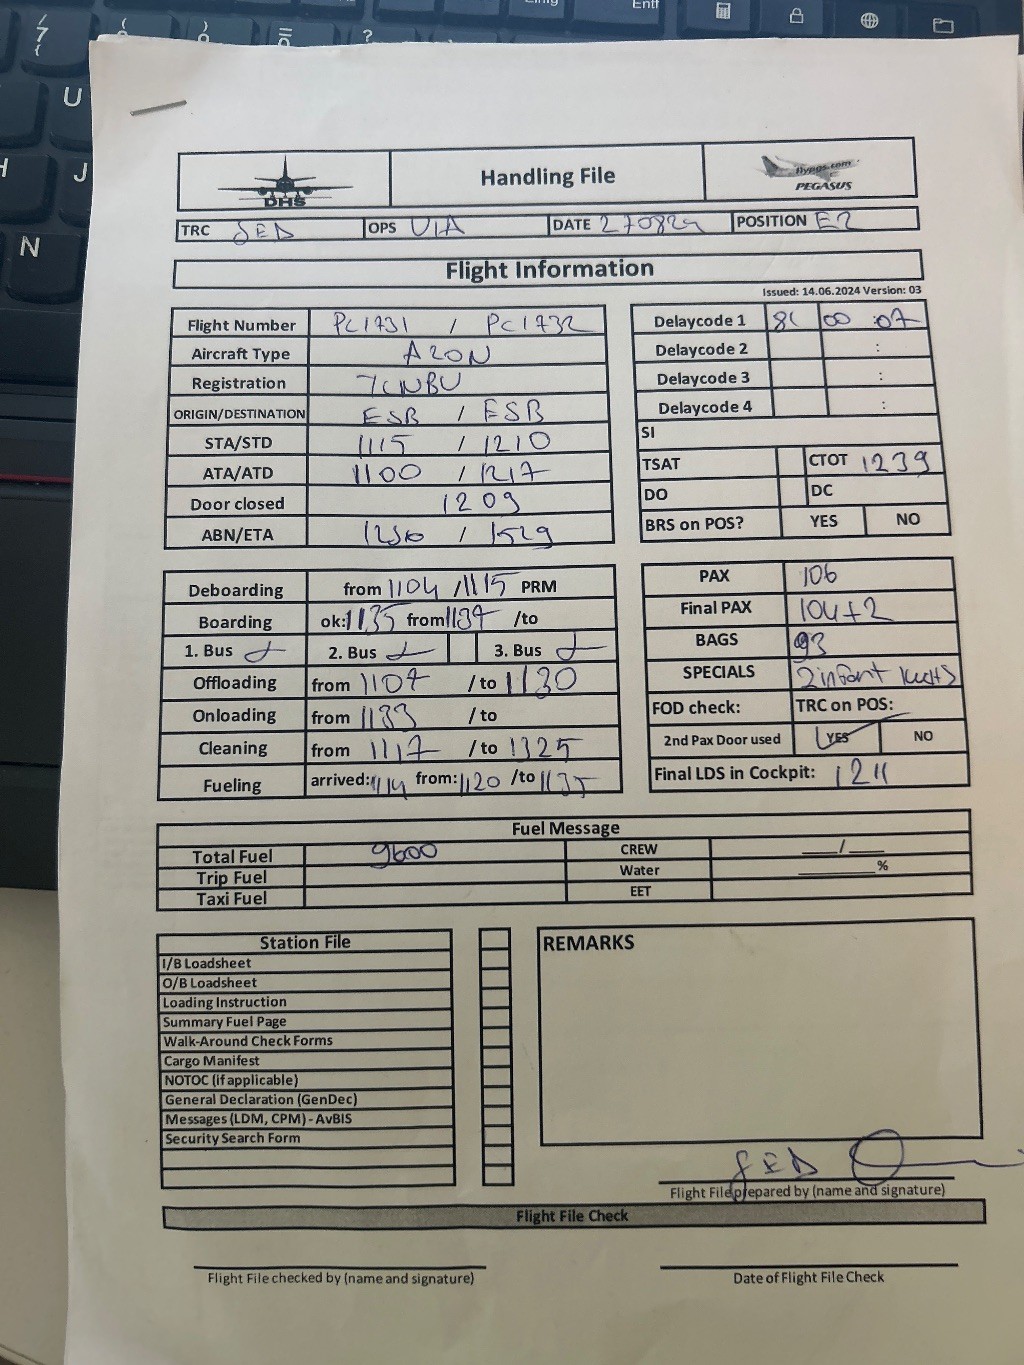 Entf
7
{
?
U
H
J
N
DHS
Handling File
flypgs.com
PEGASUS
TRC SED OPS UIA DATE 270824 POSITION E2
Flight Information
Issued: 14.06.2024 Version: 03
Flight Number PC1731 / PC1732
Aircraft Type A20N
Registration TCNBU
ORIGIN/DESTINATION ESB / ESB
STA/STD 1115 / 1210
ATA/ATD 1100 / 1217
Door closed 1209
ABN/ETA / 1529
Delaycode 1 81 00 :07
Delaycode 2 :
Delaycode 3 :
Delaycode 4 :
SI
TSAT CTOT 1239
DO DC
BRS on POS? YES NO
Deboarding from 1104 / 1115 PRM
Boarding ok: 1135 from 1137 /to
1. Bus 2. Bus 3. Bus
Offloading from 1107 /to 1130
Onloading from 1133 /to
Cleaning from 1117 /to 1325
Fueling arrived: 1114 from: 1120 /to 1135
PAX 106
Final PAX 104+2
BAGS 93
SPECIALS 2 infant
FOD check: TRC on POS:
2nd Pax Door used YES NO
Final LDS in Cockpit: 1211
Fuel Message
Total Fuel 9600 CREW ___/___
Trip Fuel Water ________%
Taxi Fuel EET
Station File
I/B Loadsheet
O/B Loadsheet
Loading Instruction
Summary Fuel Page
Walk-Around Check Forms
Cargo Manifest
NOTOC (if applicable)
General Declaration (GenDec)
Messages (LDM, CPM) - AvBIS
Security Search Form
REMARKS
SED
Flight File prepared by (name and signature)
Flight File Check
Flight File checked by (name and signature)
Date of Flight File Check